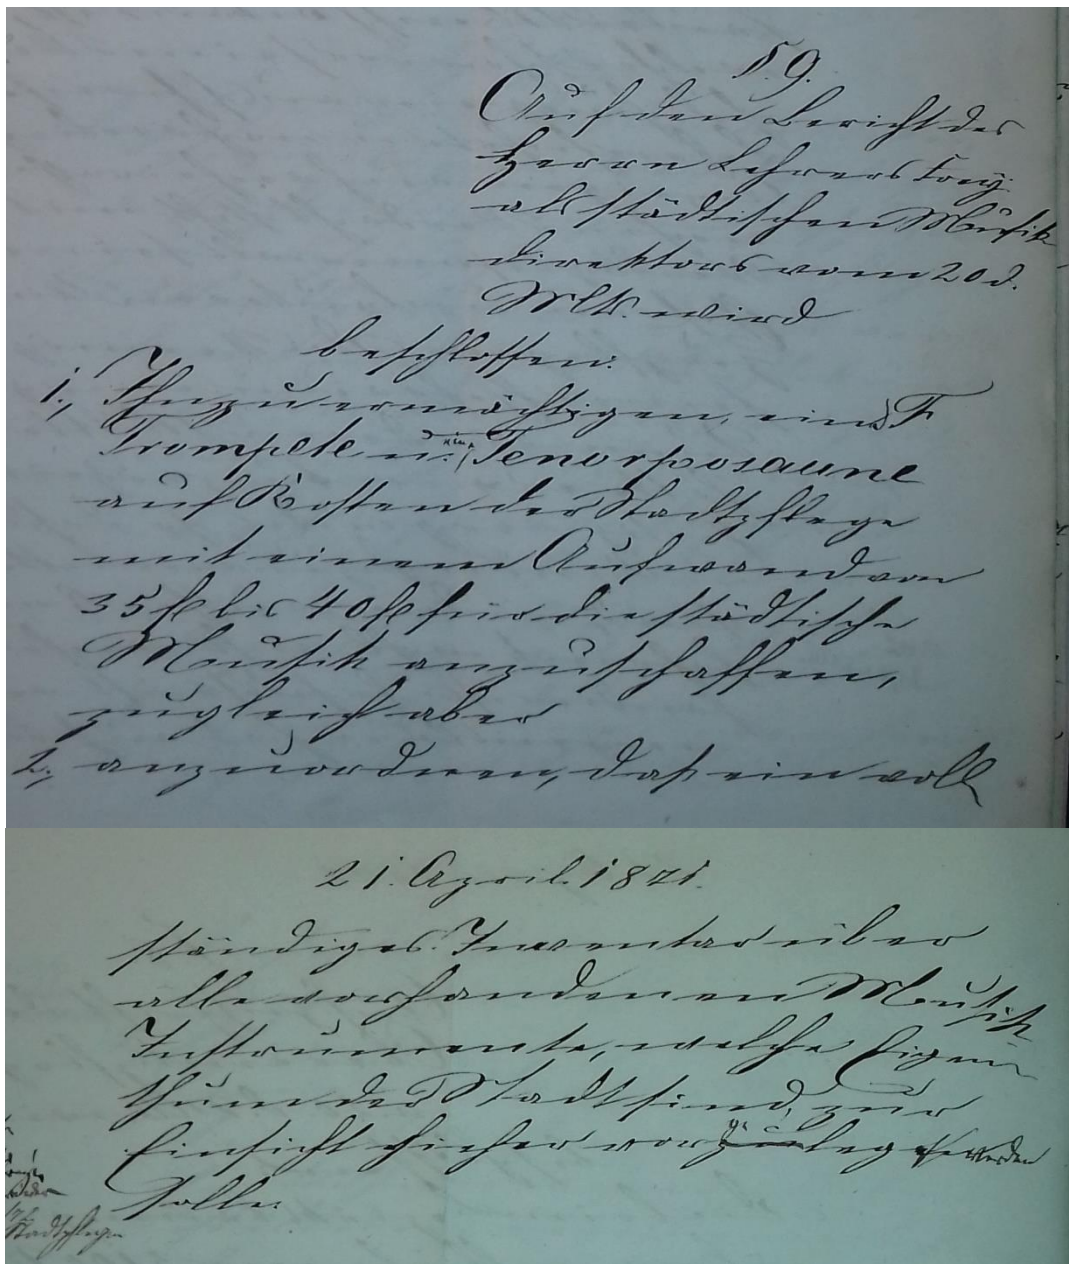 §. 9.
Auf den Bericht des
Herrn Lehrers
als städtischen Musik
direktors vom 20 d.
Mts. wird
beschlossen:
1., Ihn zu ermächtigen, eine F
Trompete u. eine Tenorposaune
auf Kosten der Stadtpflege
mit einem Aufwand von
35 fl bis 40 fl für die städtische
Musik anzuschaffen,
zugleich aber
2., anzuordnen, daß ein voll
21. April 1871.
ständiges Inventar über
alle vorhandenen Musik
Instrumente, welche Eigen
thum der Stadt sind, zur
Einsicht hieher vorgelegt werden
solle.
Stadtpflege